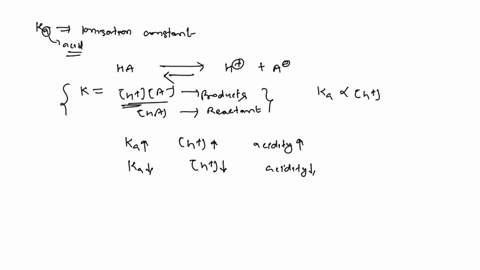 Ka ⇒ Ionisation constant
acid
HA ⇌ H⊕ + A⊖
K = [H+][A-] → Products Ka ∝ [H+]
[HA] → Reactant
Ka↑ [H+]↑ acidity↑
Ka↓ [H+]↓ acidity↓